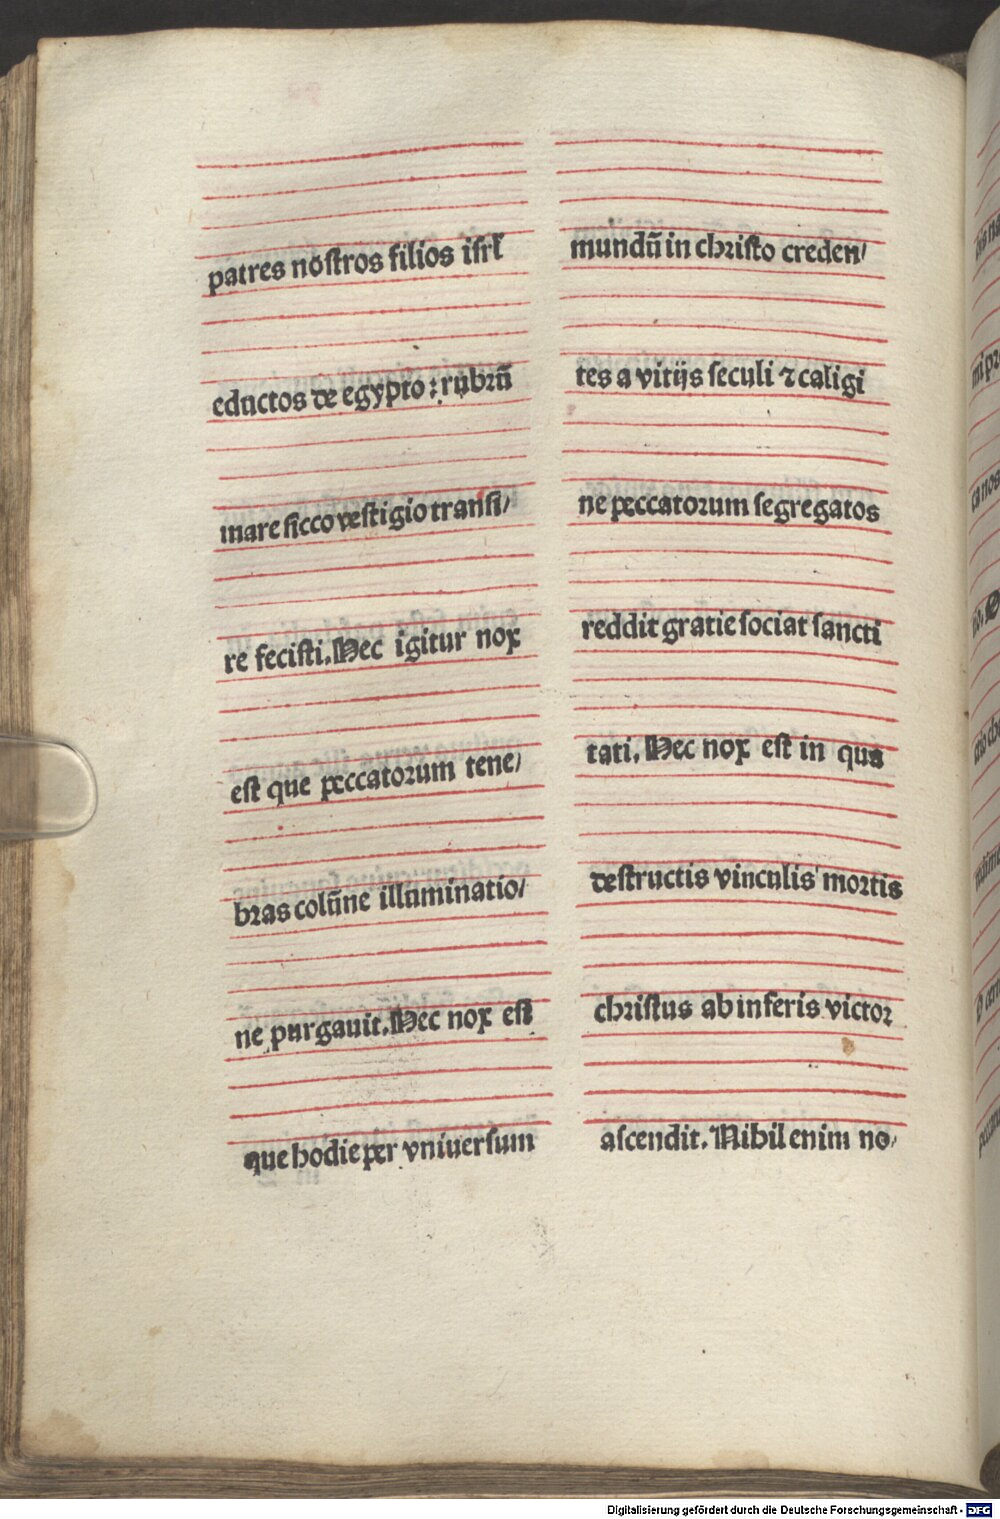 patres nostros filios isrl̄
eductos de egypto : rubrū
mare sicco vestigio transi/
re fecisti. Hec igitur nox
est que peccatorum tene/
bras colūne illuminatio/
ne purgauit. Hec nox est
que hodie per vniuersum
mundū in christo creden/
tes a vitijs seculi ⁊ caligi
ne peccatorum segregatos
reddit gratie sociat sancti
tati. Hec nox est in qua
destructis vinculis mortis
christus ab inferis victor
ascendit. Nihil enim no/
Digitalisierung gefördert durch die Deutsche Forschungsgemeinschaft - DFG